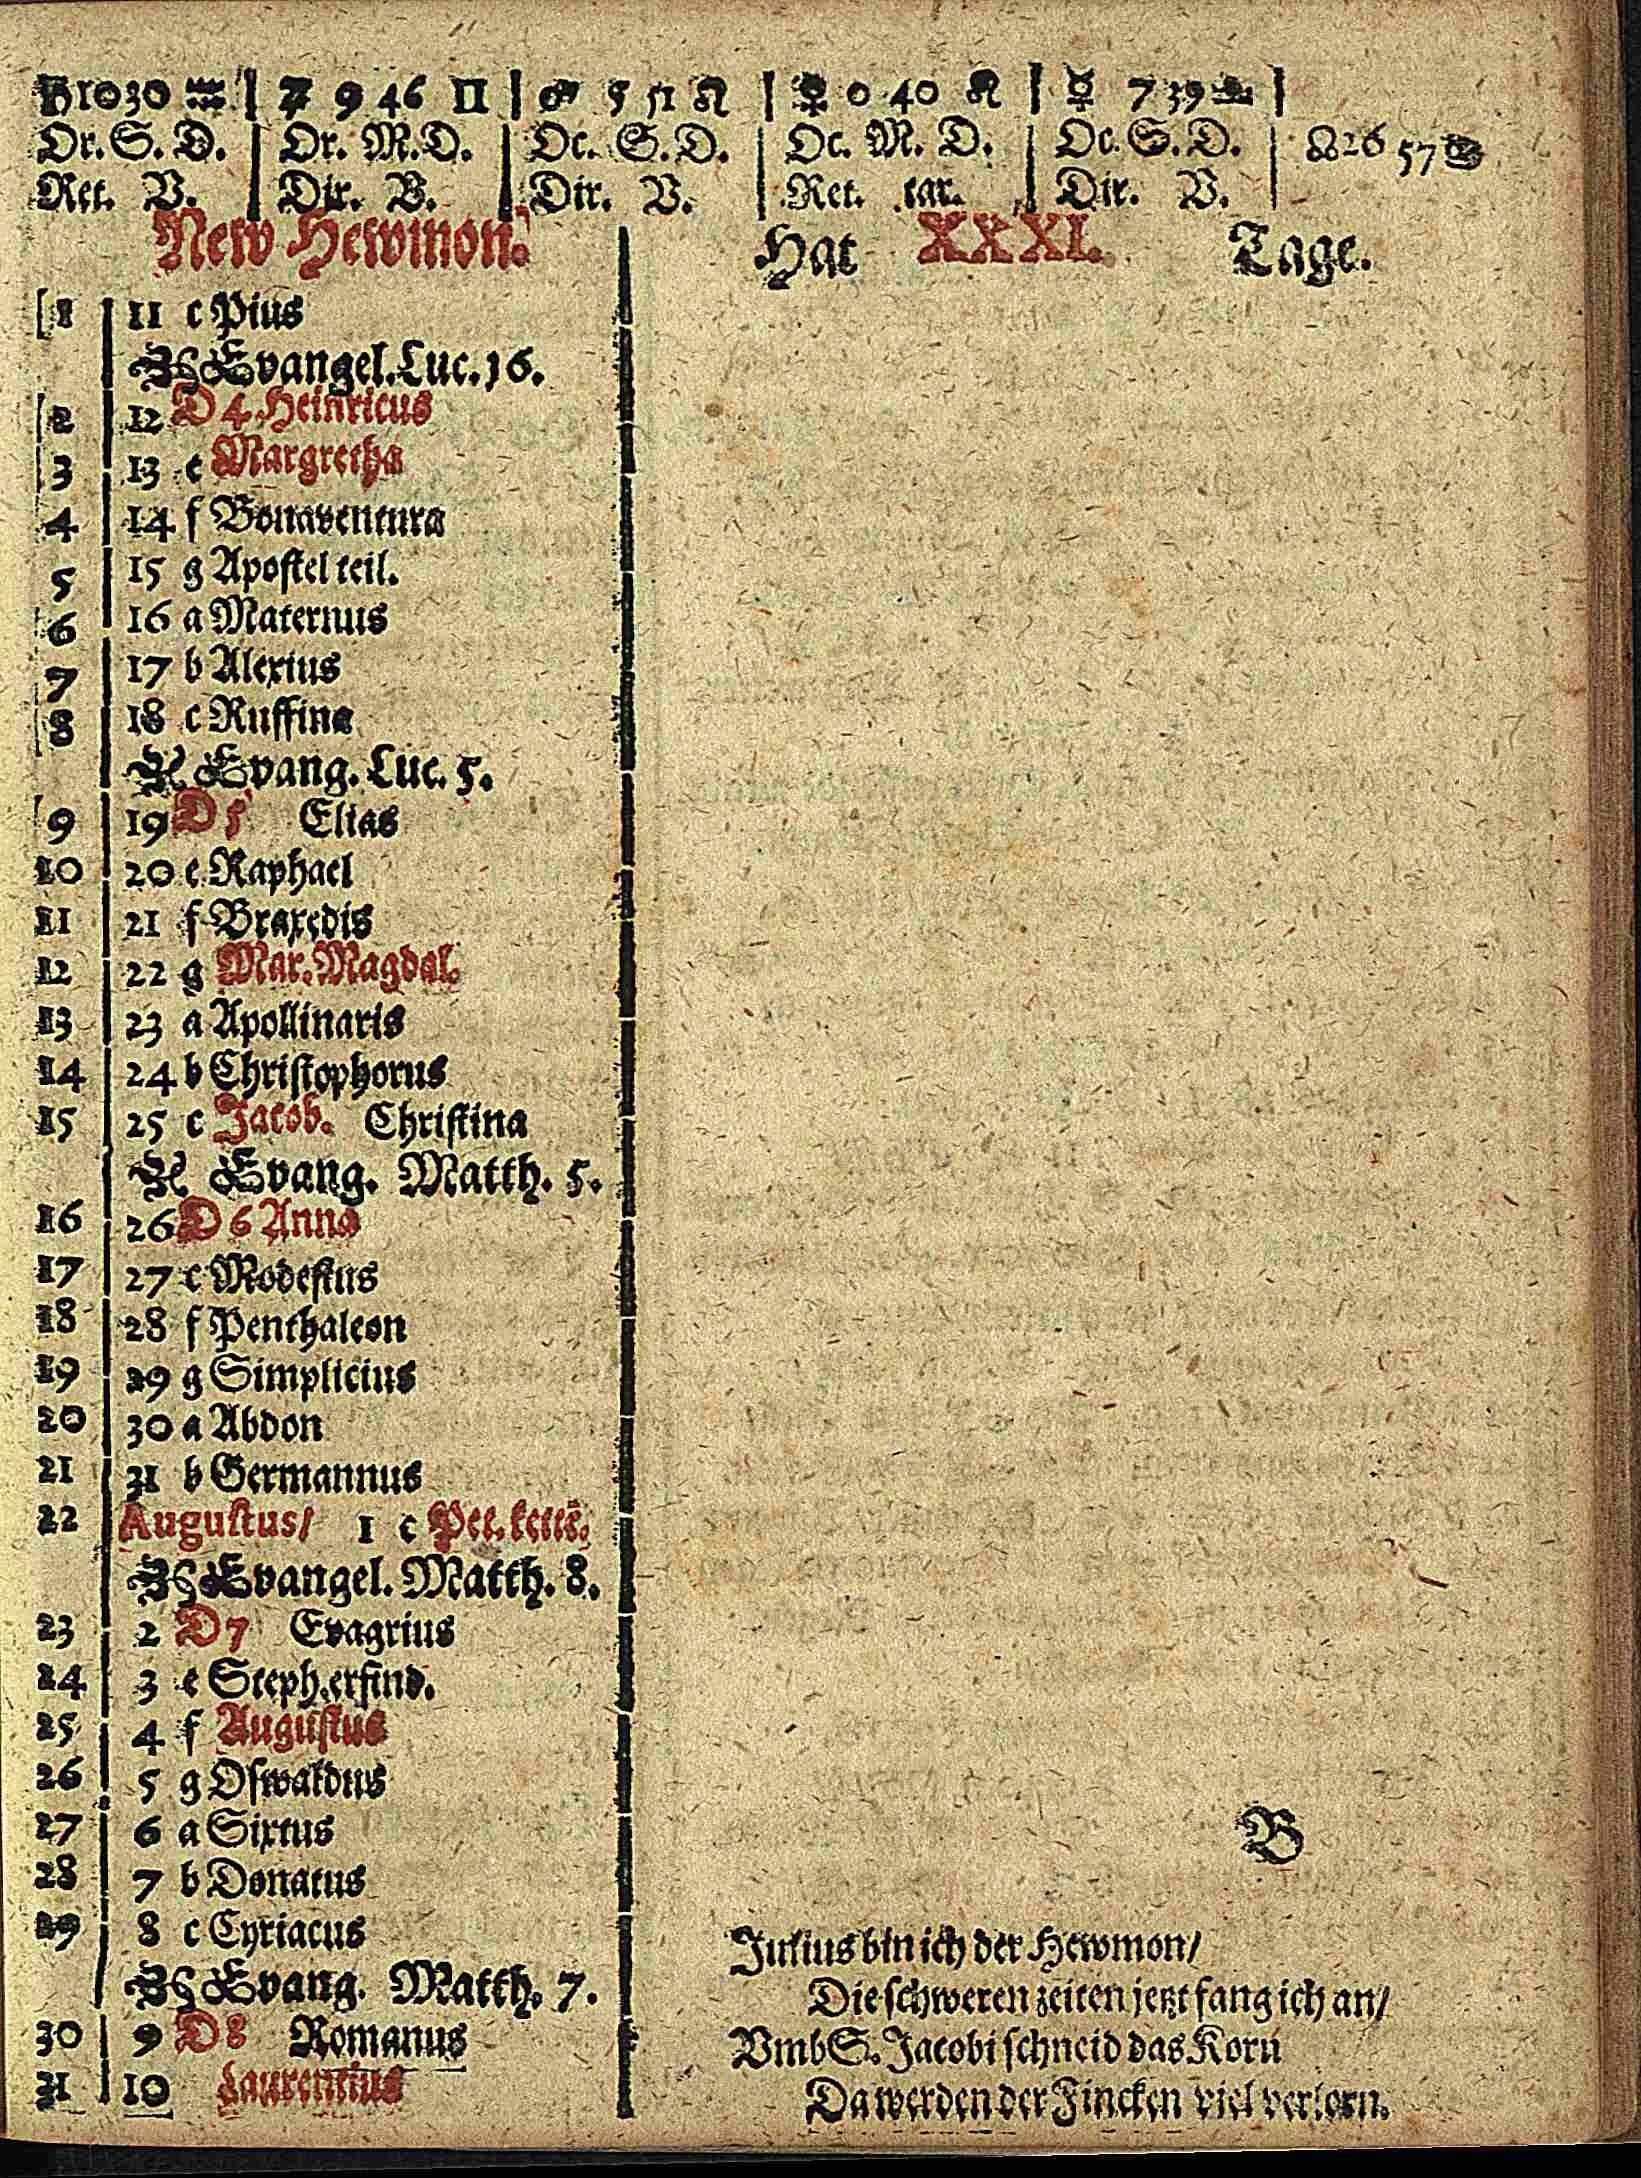 ♄ 10 30 ♒ | ♃ 9 46 ♊ | ♂ 5 51 ♌ | ♀ 0 40 ♌ | ☿ 7 39 |
Or. S. D. | Or. M. D. | Oc. S. D. | Oc. M. D. | Oc. S. D. | ☊ 26 57
Ret. V. | Dir. B. | Dir. V. | Ret. tar. | Dir. V. |
New Hewmon. Hat XXXI. Tage.
1 11 c Pius
Evangel. Luc. 16.
2 12 D 4 Heinricus
3 13 e Margretha
4 14 f Bonaventura
5 15 g Apostel teil.
6 16 a Maternus
7 17 b Alexius
8 18 c Ruffina
Evang. Luc. 5.
9 19 D 5 Elias
10 20 e Raphael
11 21 f Braxedis
12 22 g Mar. Magdal.
13 23 a Apollinaris
14 24 b Christophorus
15 25 c Jacob. Christina
Evang. Matth. 5.
16 26 D 6 Anna
17 27 e Modestus
18 28 f Penthaleon
19 29 g Simplicius
20 30 a Abdon
21 31 b Germannus
22 Augustus/ 1 c Pet. kettē.
Evangel. Matth. 8.
23 2 D 7 Evagrius
24 3 e Steph. erfind.
25 4 f Augustus
26 5 g Oswaldus
27 6 a Sixtus
28 7 b Donatus
29 8 c Cyriacus
Evang. Matth. 7.
30 9 D 8 Romanus
31 10 Laurentius
B
Julius bin ich der Hewmon/
Die schweren zeiten jetzt fang ich an/
Vmb S. Jacobi schneid das Korn
Da werden der Fincken viel verlorn.